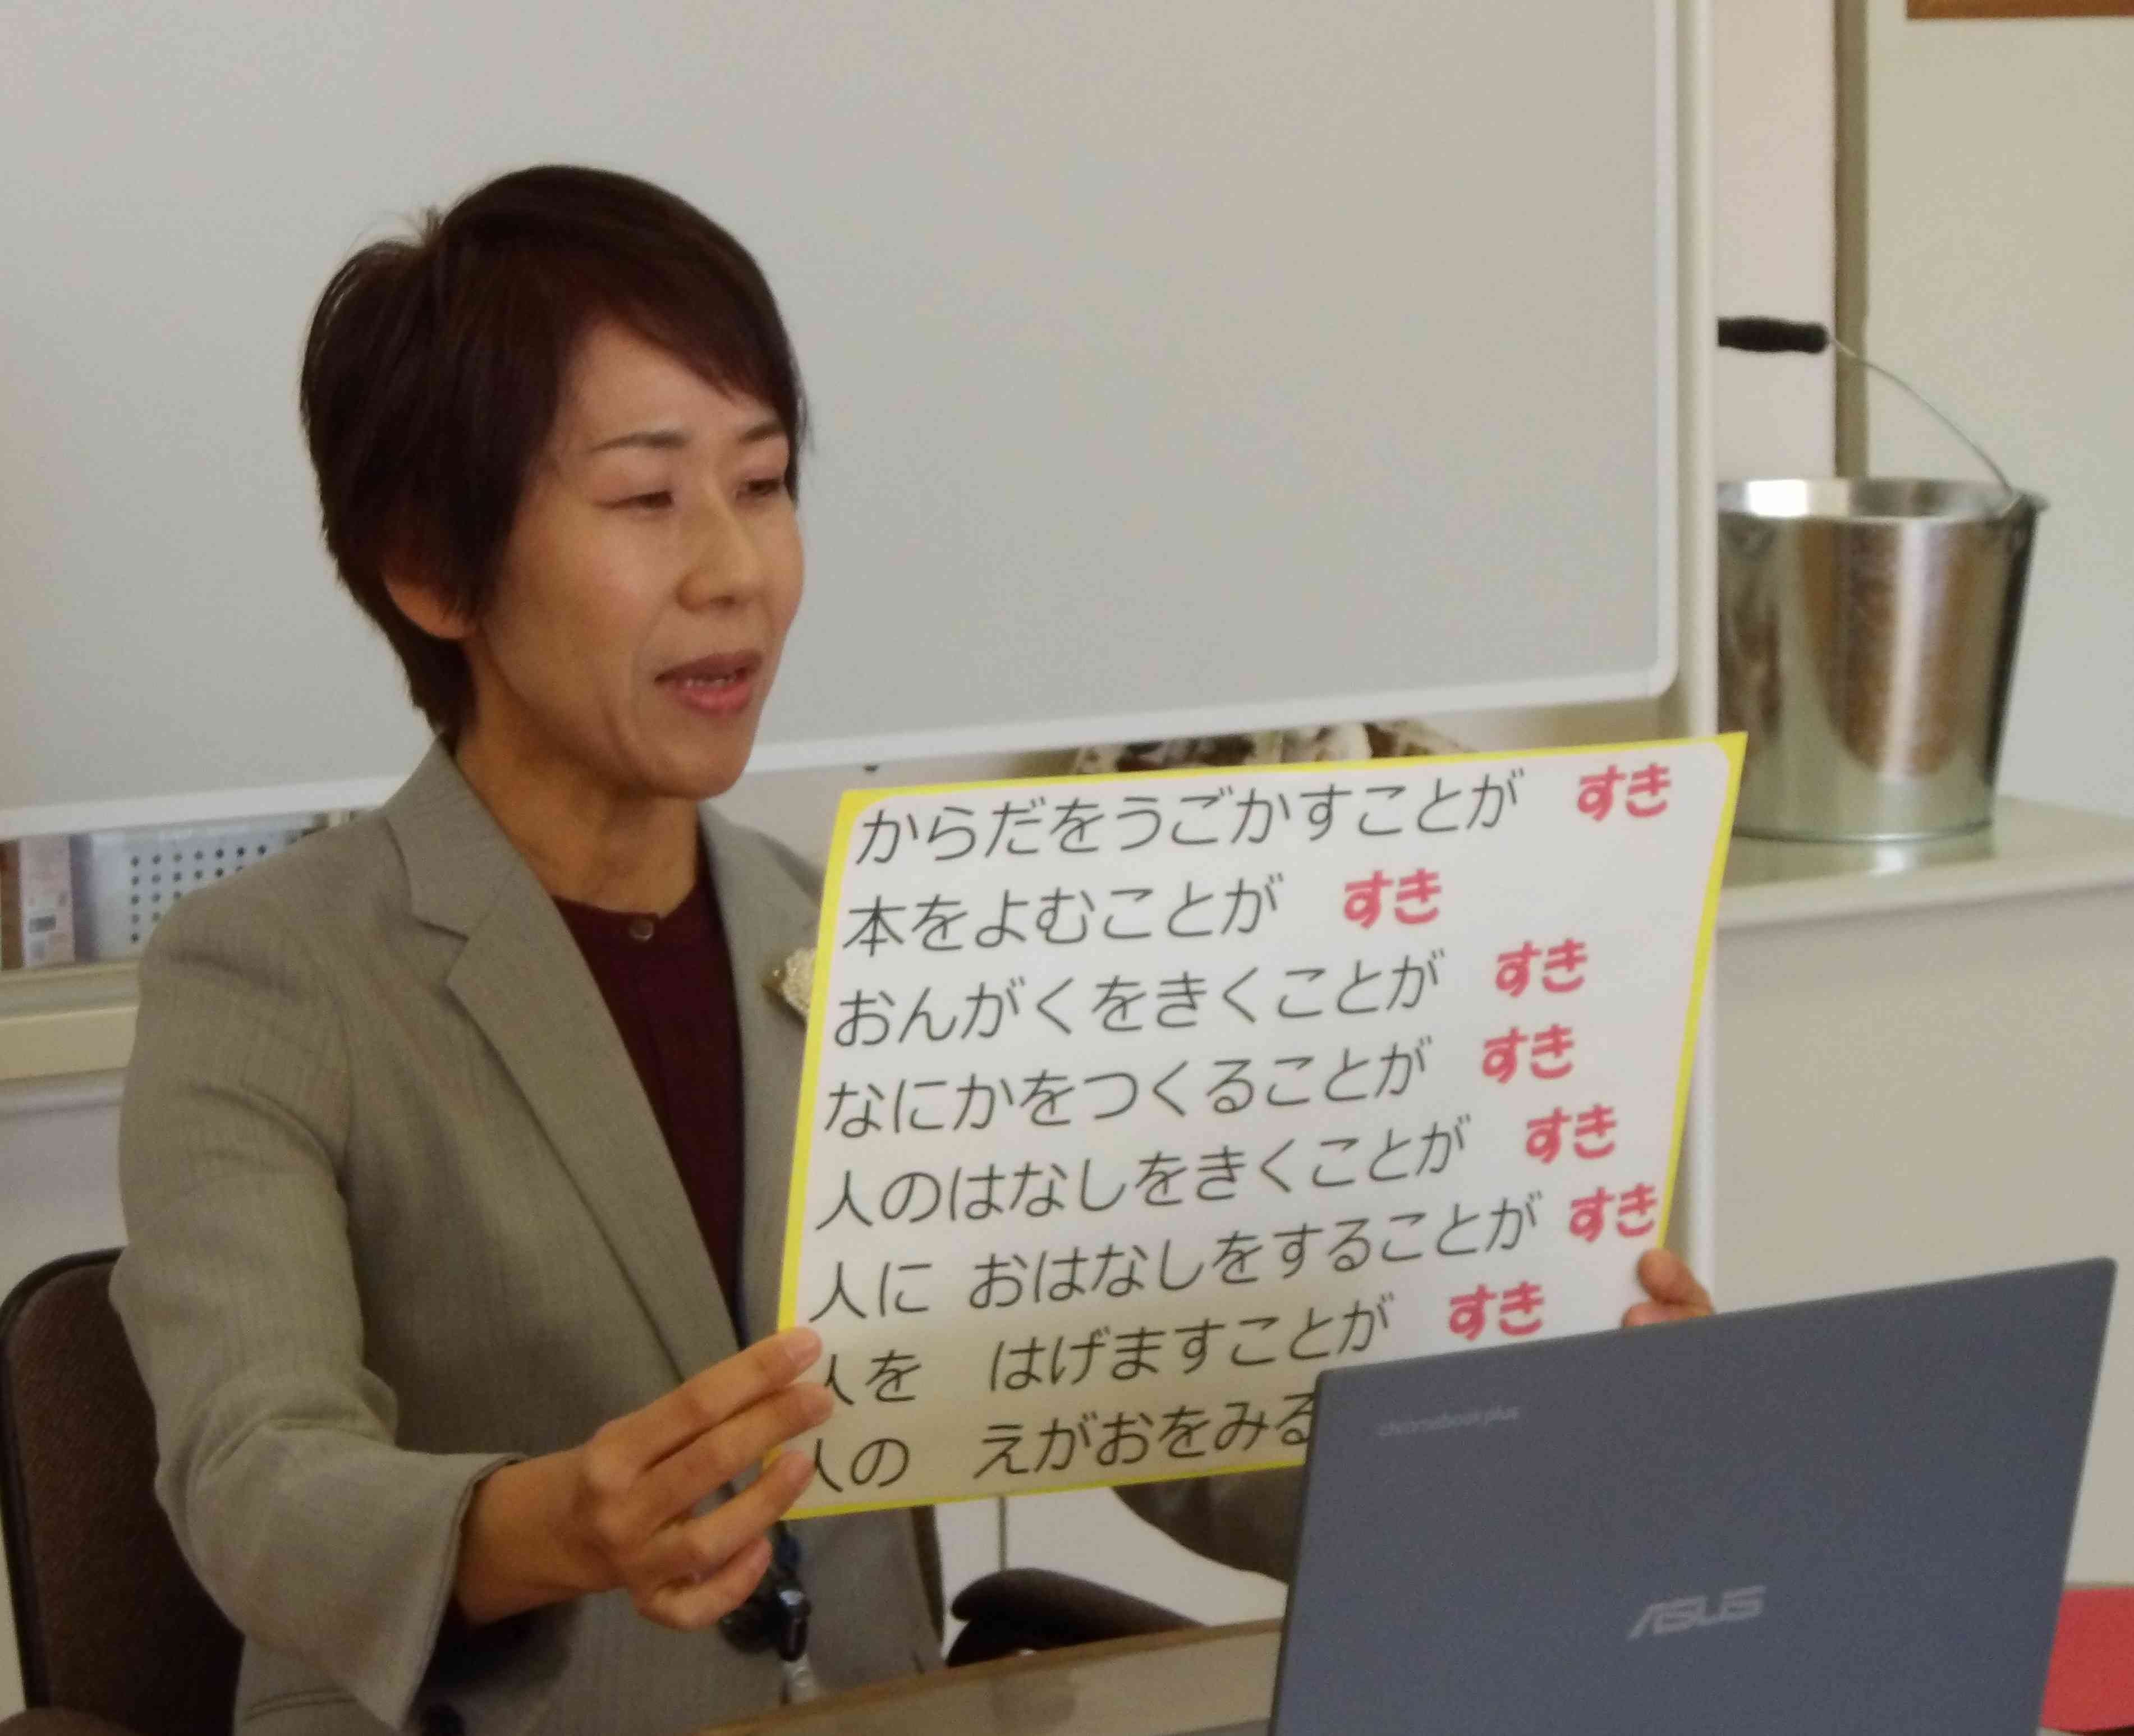 からだをうごかすことが すき
本をよむことが すき
おんがくをきくことが すき
なにかをつくることが すき
人のはなしをきくことが すき
人に おはなしをすることが すき
人を はげますことが すき
人の えがおをみる
chromebook plus
ASUS